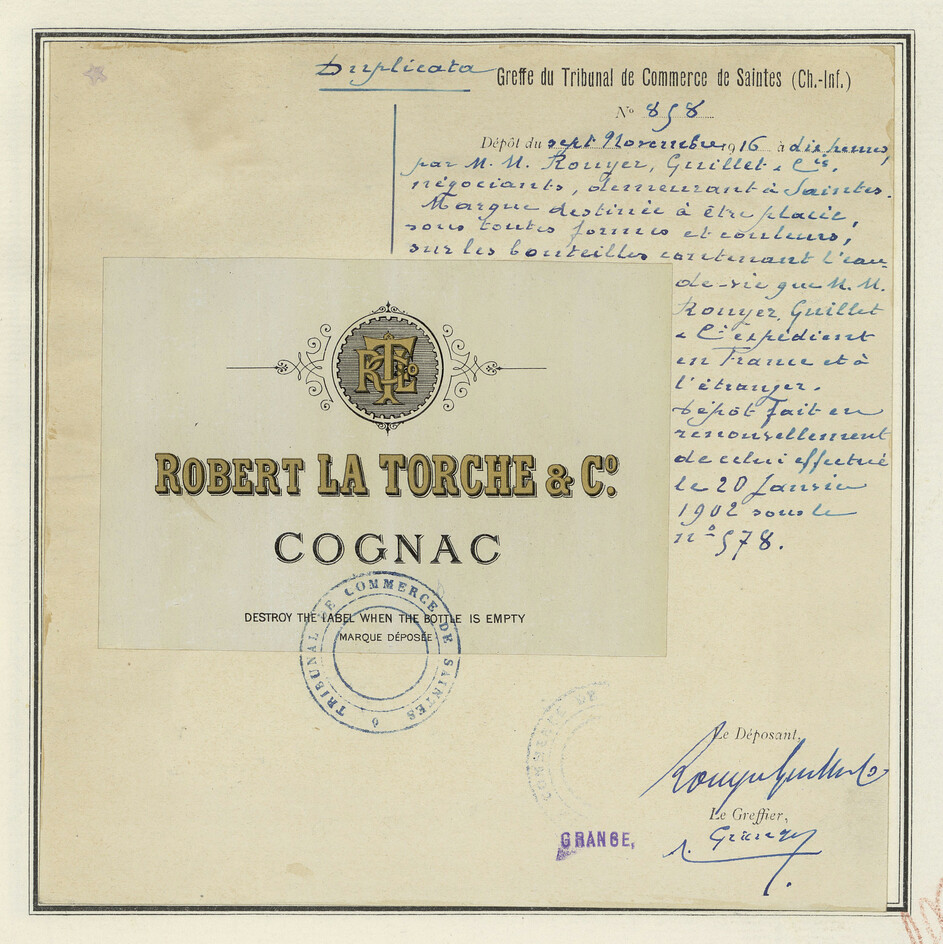 Duplicata
Greffe du Tribunal de Commerce de Saintes (Ch.-Inf.)
N° 858
Dépôt du sept Novembre 1916 à dix heures,
par M. M. Rouyer, Guillet & Cie,
négociants, demeurant à Saintes.
Marque destinée à être placée,
sous toutes formes et couleurs,
sur les bouteilles contenant l'eau-
de-vie que M. M.
Rouyer, Guillet
& Cie expédient
en France et à
l'étranger.
Dépôt fait en
renouvellement
de celui effectué
le 20 Janvier
1902 sous le
n° 578.
RLT & Co
ROBERT LA TORCHE & Co.
COGNAC
DESTROY THE LABEL WHEN THE BOTTLE IS EMPTY
MARQUE DÉPOSÉE
TRIBUNAL DE COMMERCE DE SAINTES
COMMERCE
Le Déposant,
Rouyer Guillet & Co
Le Greffier,
GRANGE,
Grange